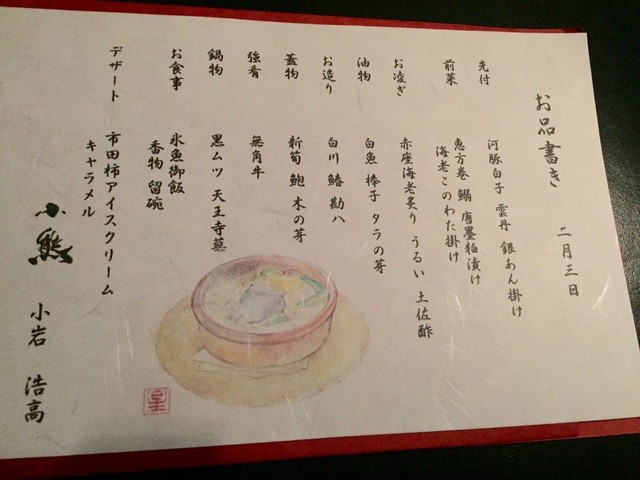 お品書き
二月三日
先付
河豚白子 雲丹 銀あん掛け
前菜
恵方巻 鰯 唐墨粕漬け
海老このわた掛け
お凌ぎ
赤座海老炙り うるい 土佐酢
油物
白魚 棒子 タラの芽
お造り
白川 鰆 勘八
蓋物
新筍 鮑 木の芽
強肴
無角牛
鍋物
黒ムツ 天王寺蕪
お食事
氷魚御飯
香物 留碗
デザート
市田柿アイスクリーム
キャラメル
小熊
小岩 浩高